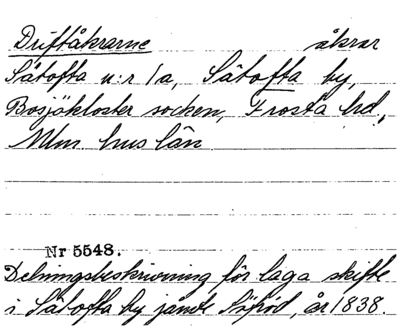 Driftåkrarne åkrar
Såtofta n:r 1a, Såtofta by,
Bosjökloster socken, Frosta hd.,
Mlm hus län
Nr 5548.
Delningsbeskrivning för laga skifte
i Såtofta by jämte Sjöröd, år 1838.